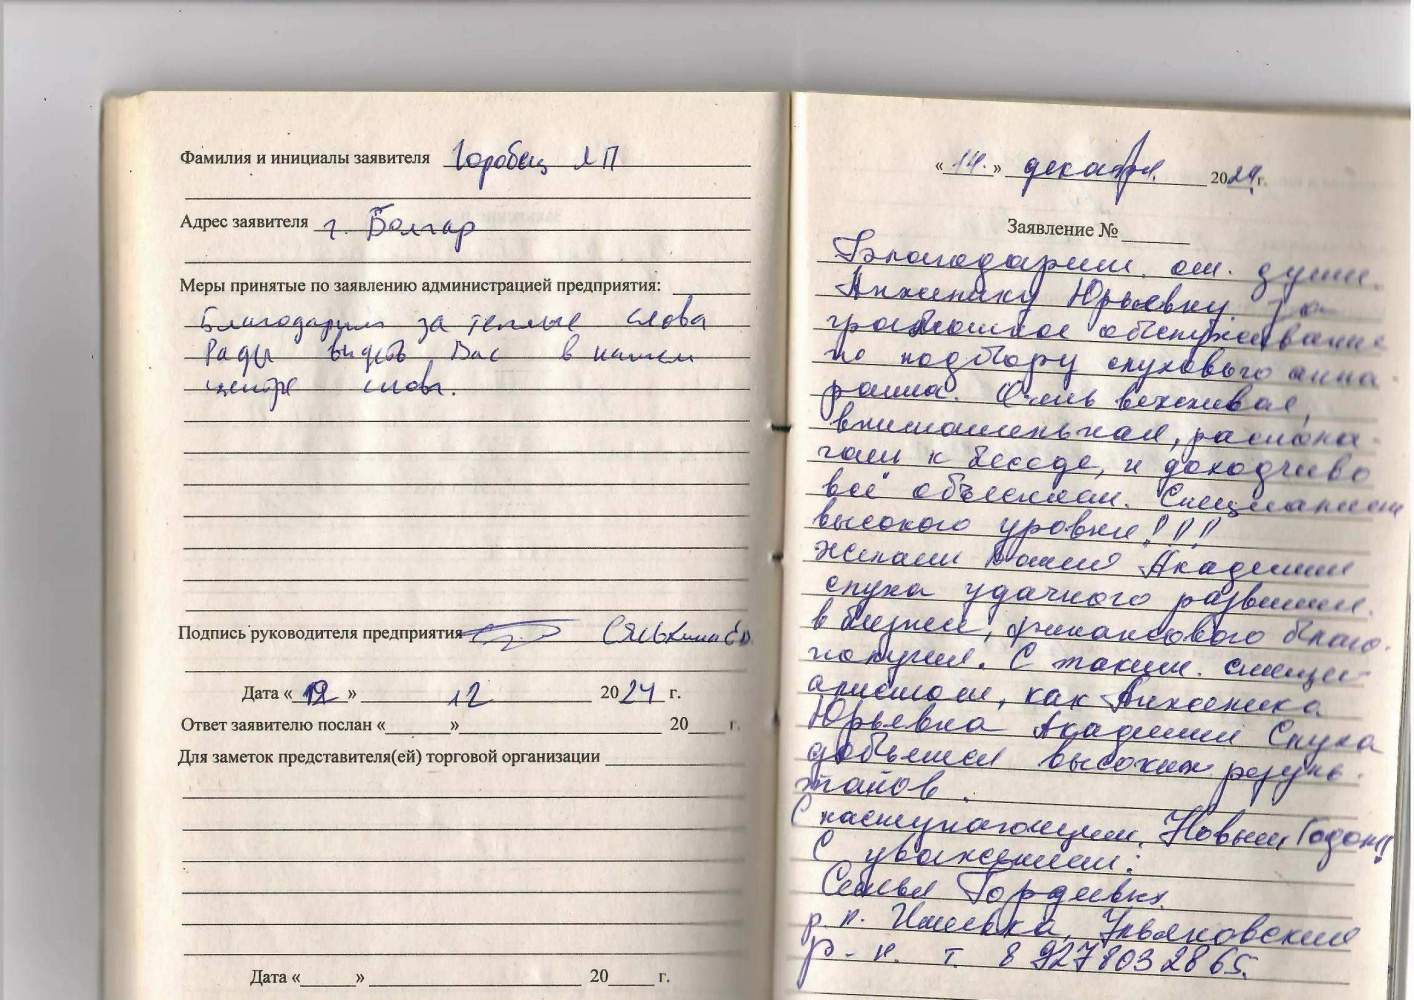 Фамилия и инициалы заявителя Горобец Л П
Адрес заявителя г. Болгар
Меры принятые по заявлению администрацией предприятия:
Благодарим за теплые слова
Рады видеть Вас в нашем
центре снова.
Подпись руководителя предприятия
Дата «12» 12 2024 г.
Ответ заявителю послан «» 20 г.
Для заметок представителя(ей) торговой организации
Дата «» 20 г.
«14.» декабря 2024г.
Заявление №
Благодарим от души
Анжелику Юрьевну за
грамотное обслуживание
по подбору слухового аппа
рата. Очень вежливая,
внимательная, распола-
гает к беседе, и доходчиво
всё объясняет. Специалист
высокого уровня!!!
Желаем Вашей Академии
слуха удачного развития
в бизнесе, финансового благо-
получия. С таким специ-
алистом, как Анжелика
Юрьевна Академия Слуха
добьётся высоких резуль-
татов.
С наступающим Новым Годом!!
С уважением:
Семья Гордеевых
р.п. Ишеевка, Ульяновский
р-н. т. 89278032865.